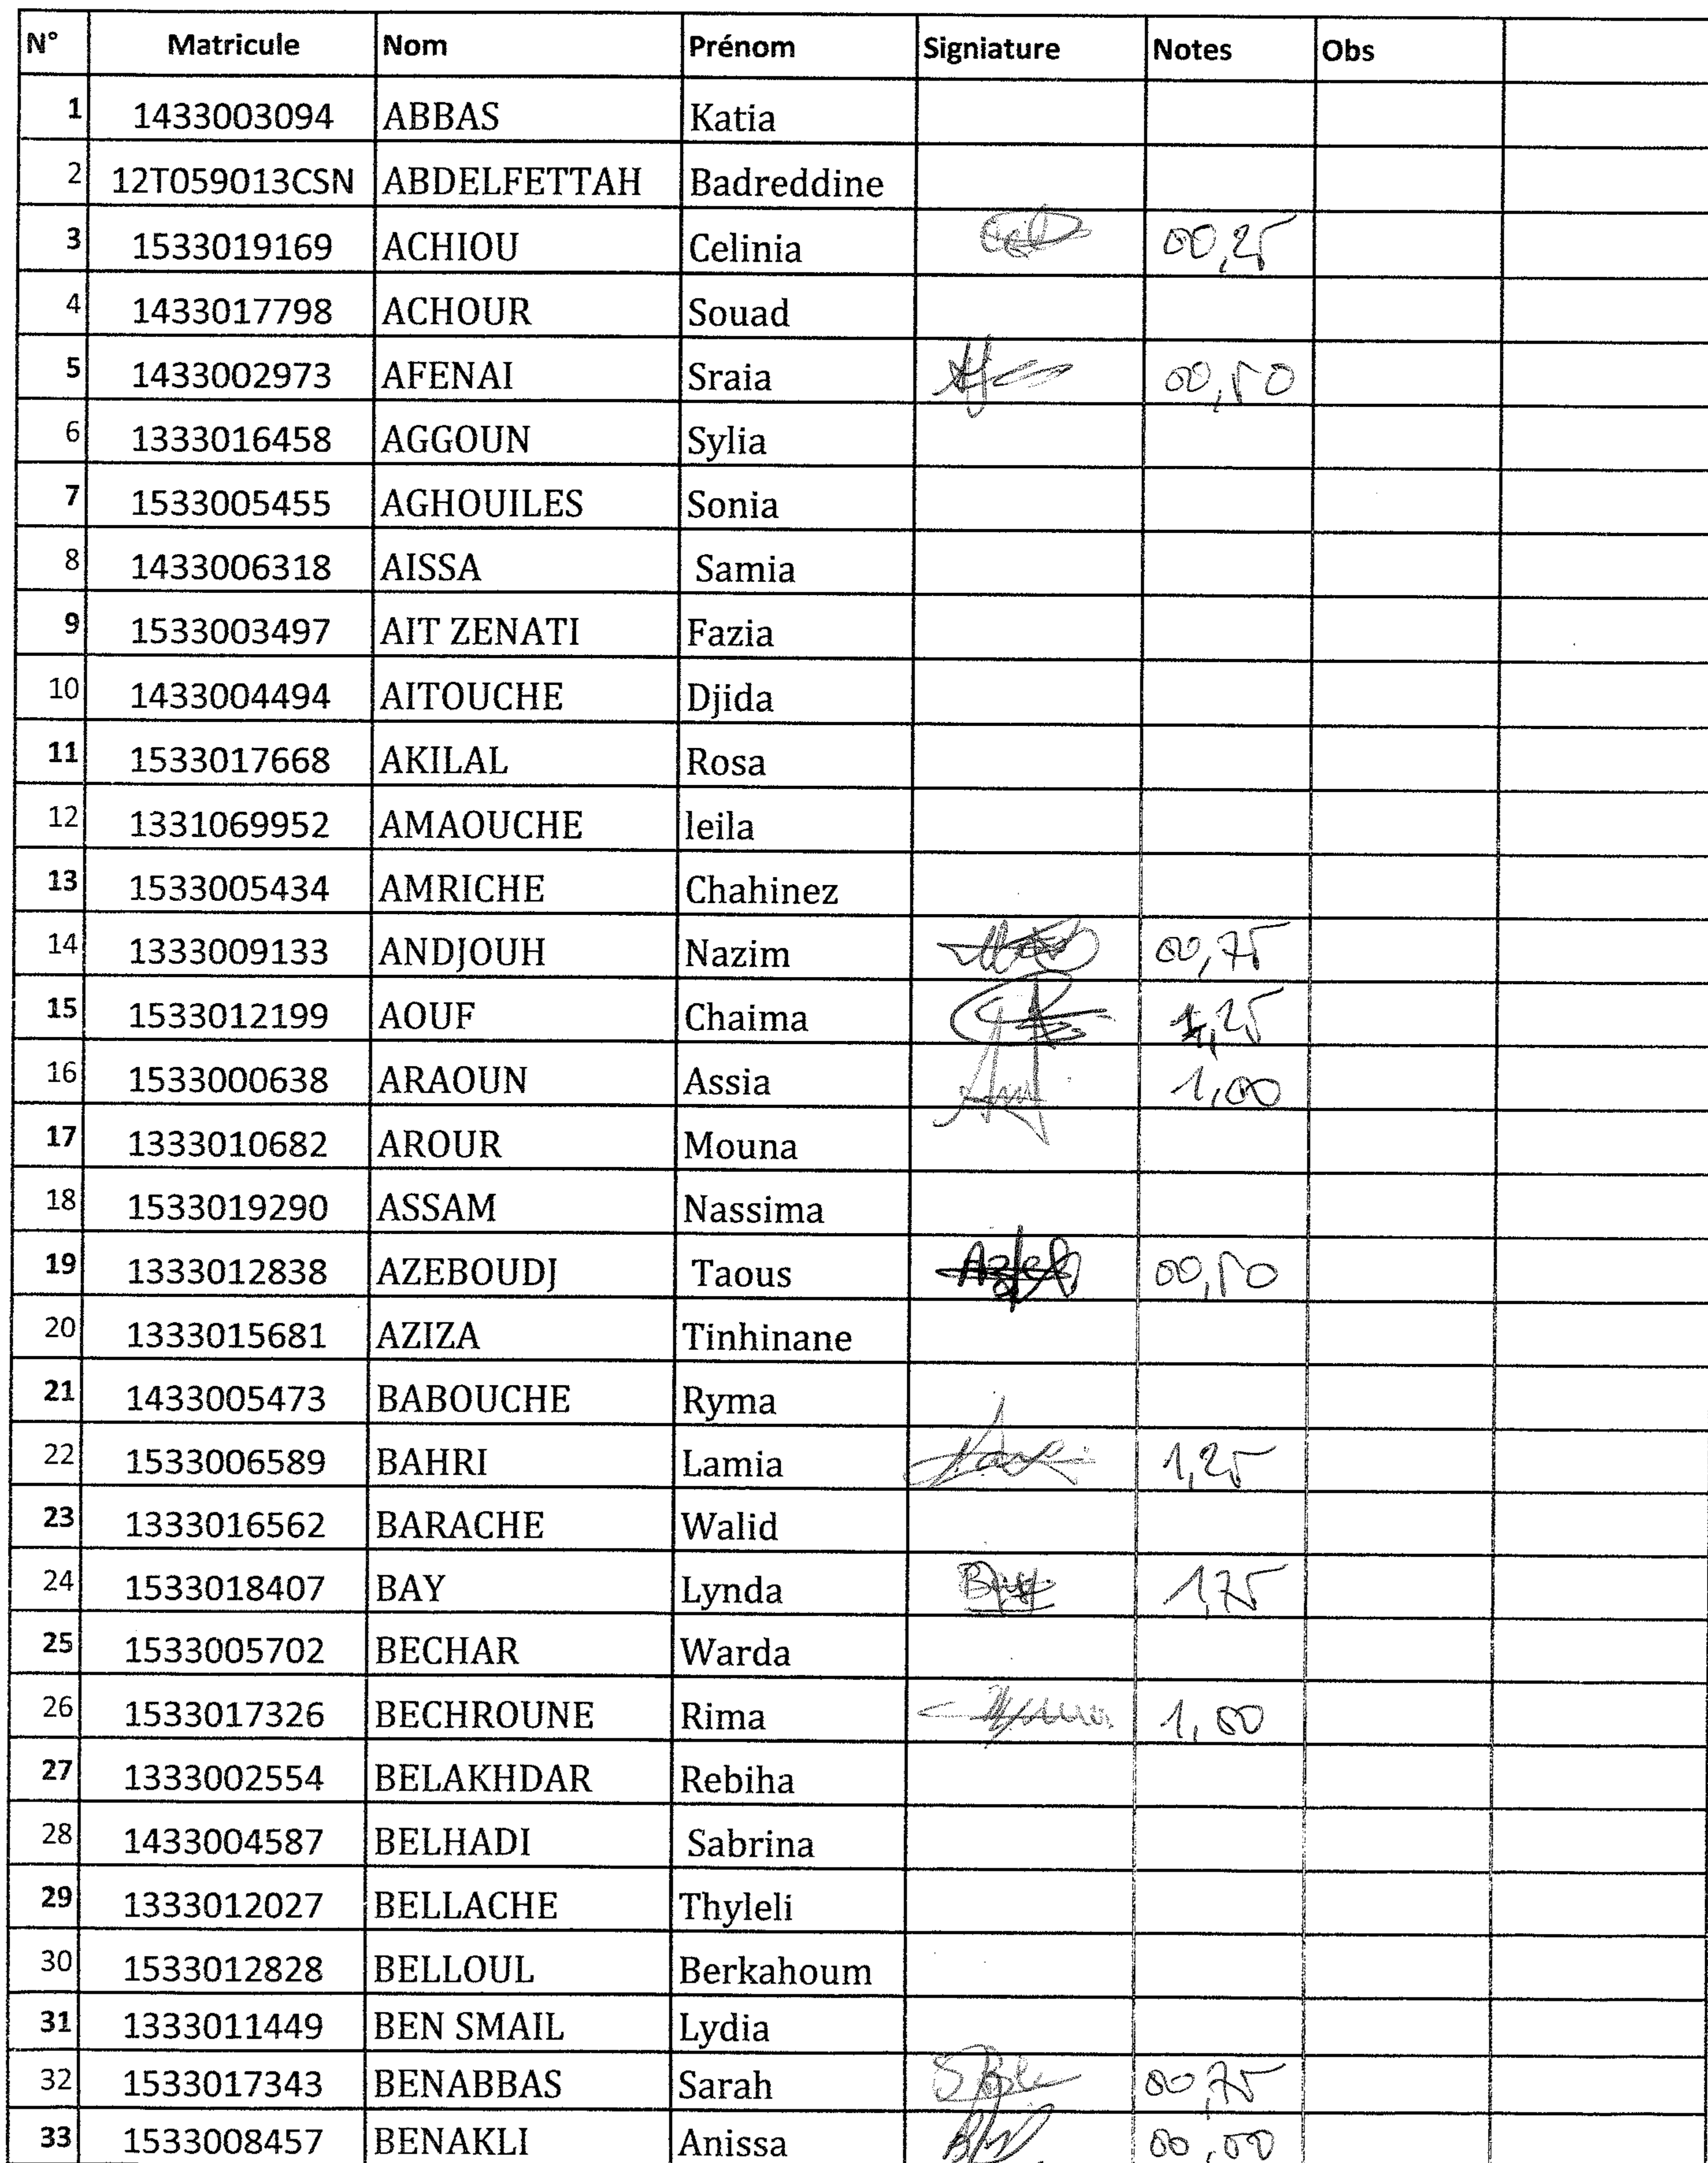 N° Matricule Nom Prénom Signiature Notes Obs
1 1433003094 ABBAS Katia
2 12T059013CSN ABDELFETTAH Badreddine
3 1533019169 ACHIOU Celinia 00,25
4 1433017798 ACHOUR Souad
5 1433002973 AFENAI Sraia 00,50
6 1333016458 AGGOUN Sylia
7 1533005455 AGHOUILES Sonia
8 1433006318 AISSA Samia
9 1533003497 AIT ZENATI Fazia
10 1433004494 AITOUCHE Djida
11 1533017668 AKILAL Rosa
12 1331069952 AMAOUCHE leila
13 1533005434 AMRICHE Chahinez
14 1333009133 ANDJOUH Nazim 00,75
15 1533012199 AOUF Chaima 1,25
16 1533000638 ARAOUN Assia 1,00
17 1333010682 AROUR Mouna
18 1533019290 ASSAM Nassima
19 1333012838 AZEBOUDJ Taous 00,50
20 1333015681 AZIZA Tinhinane
21 1433005473 BABOUCHE Ryma
22 1533006589 BAHRI Lamia 1,25
23 1333016562 BARACHE Walid
24 1533018407 BAY Lynda 1,75
25 1533005702 BECHAR Warda
26 1533017326 BECHROUNE Rima 1,00
27 1333002554 BELAKHDAR Rebiha
28 1433004587 BELHADI Sabrina
29 1333012027 BELLACHE Thyleli
30 1533012828 BELLOUL Berkahoum
31 1333011449 BEN SMAIL Lydia
32 1533017343 BENABBAS Sarah 00,75
33 1533008457 BENAKLI Anissa 00,00